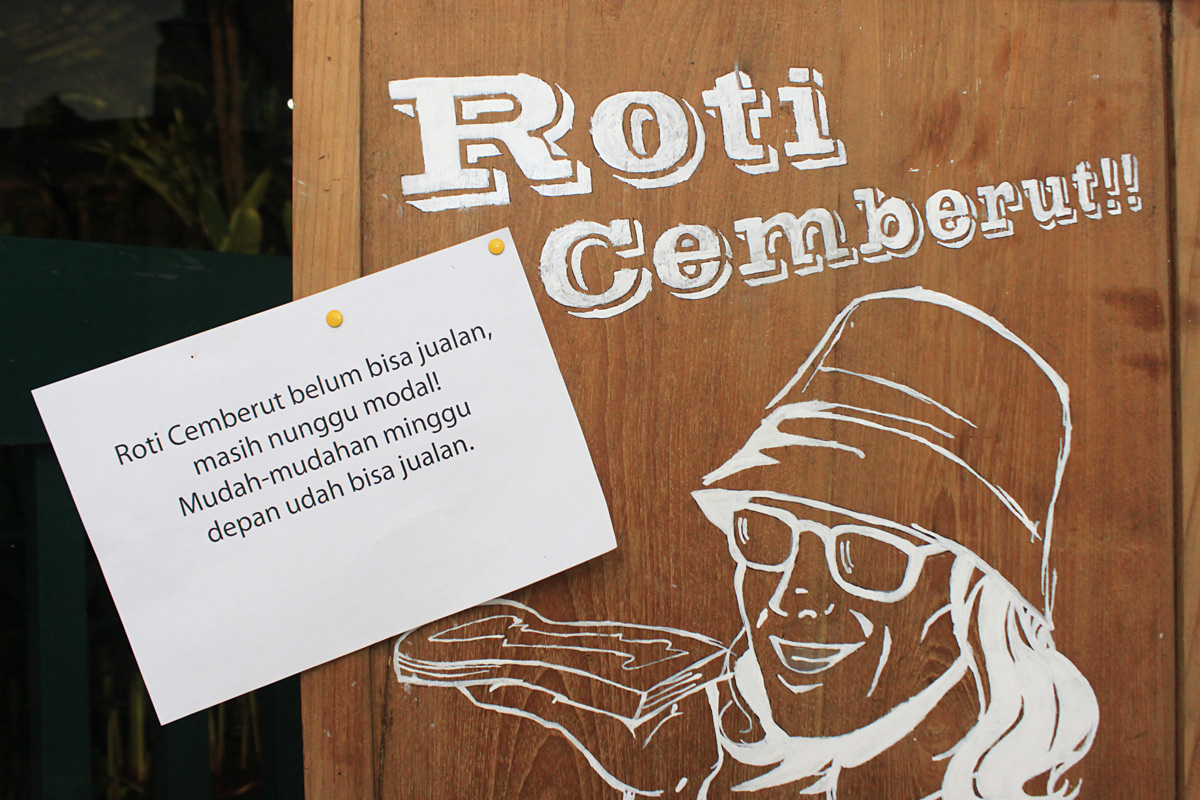 Roti
Cemberut!!
Roti Cemberut belum bisa jualan,
masih nunggu modal!
Mudah-mudahan minggu
depan udah bisa jualan.